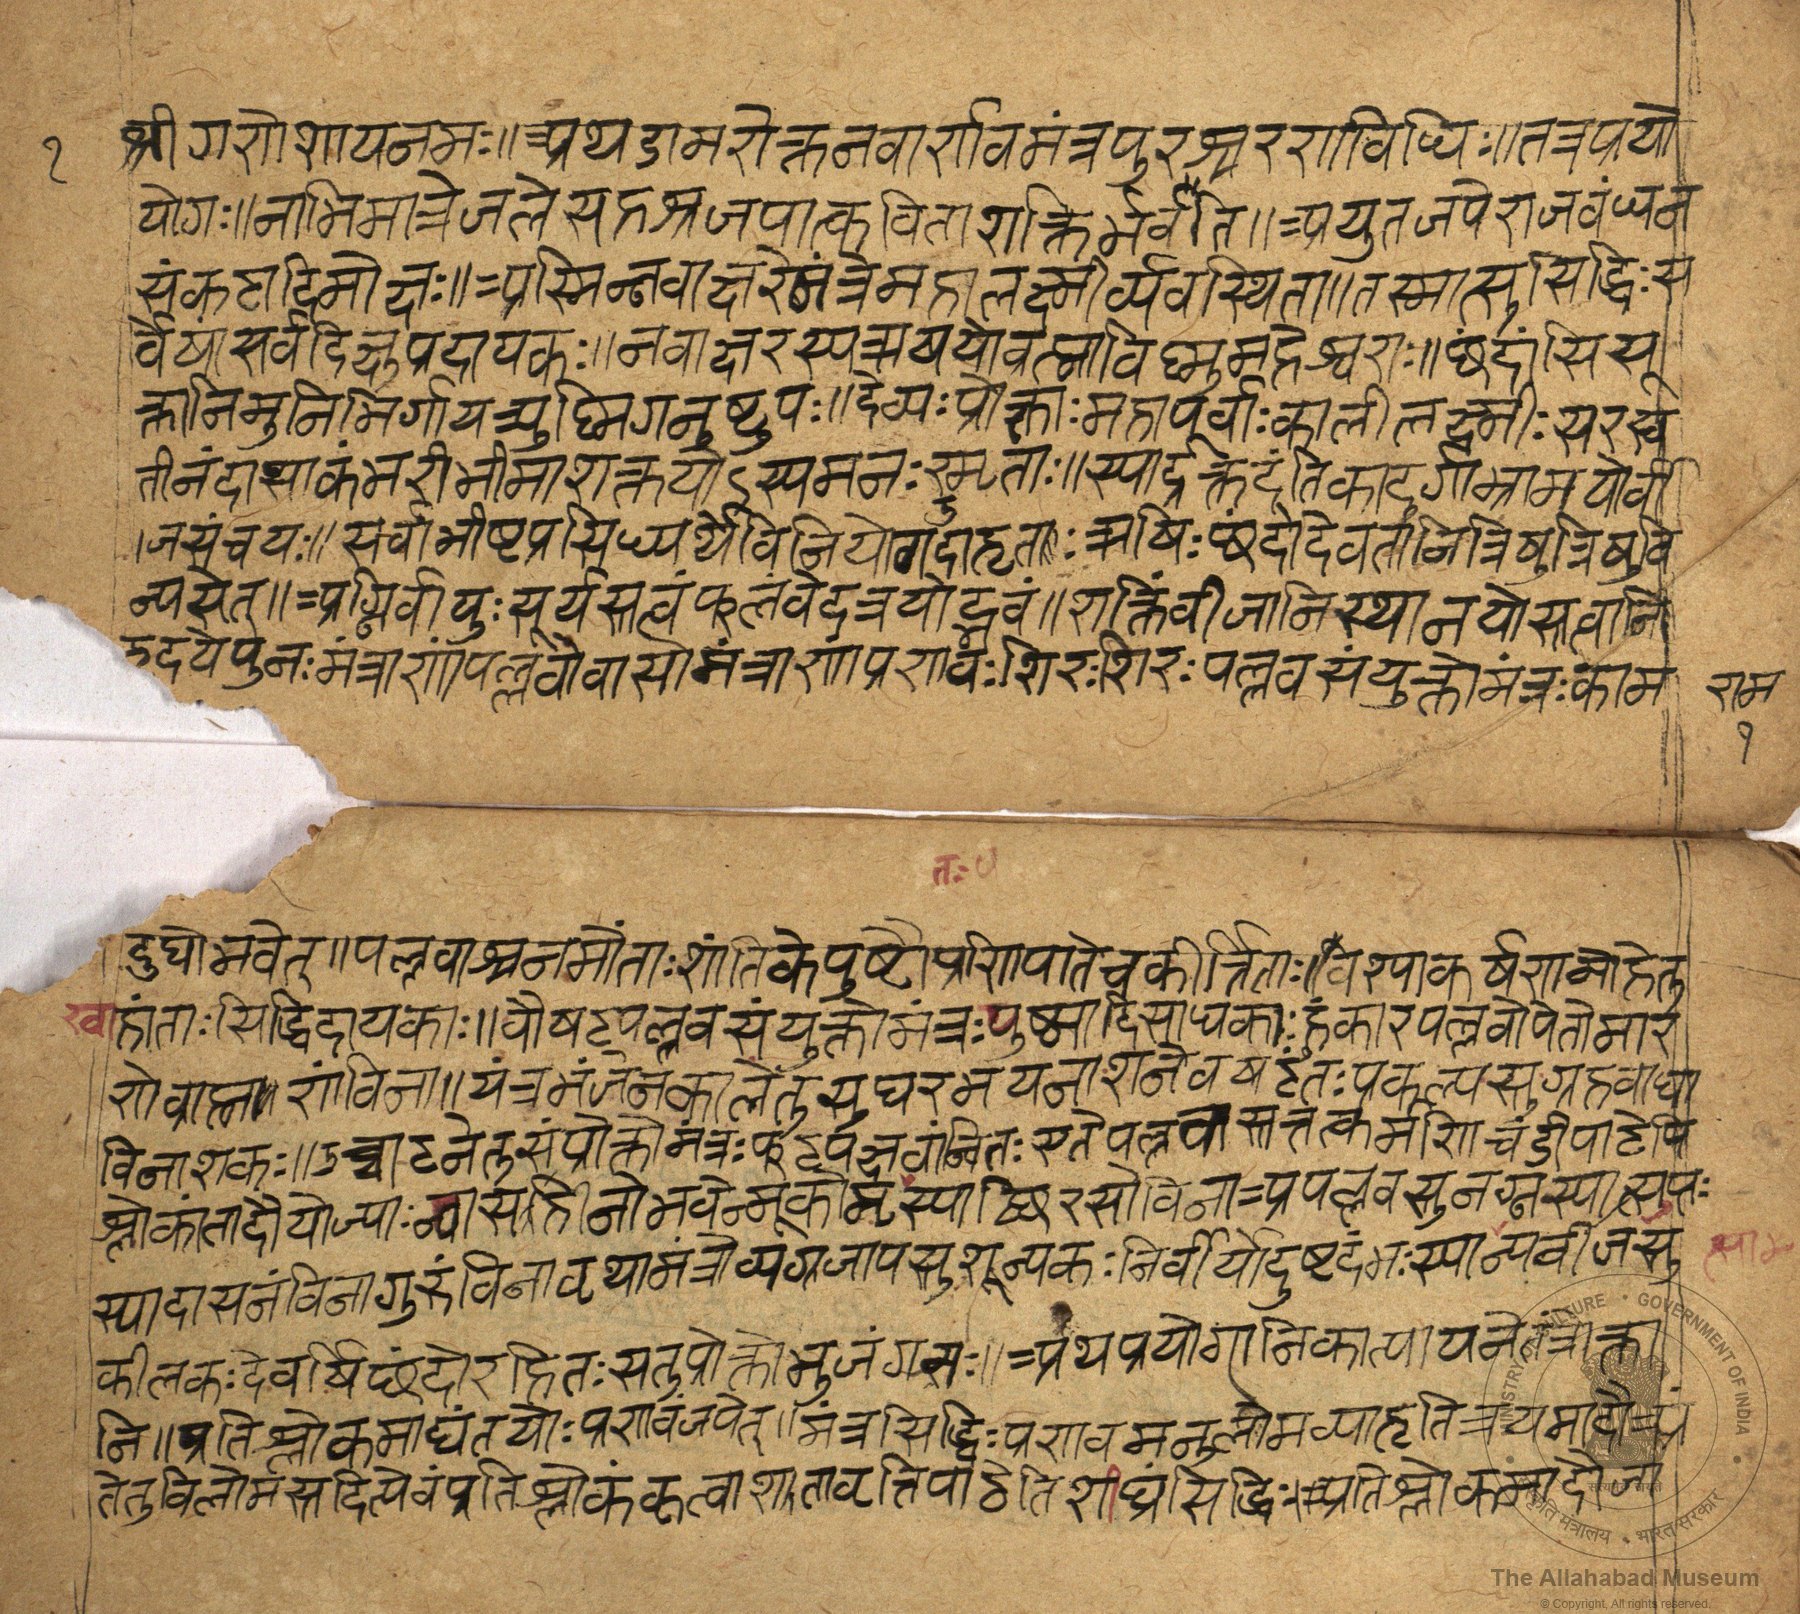 १ श्रीगणेशायनमः॥अथडामरोक्तनवार्णवमंत्रपुरश्चरणविधिः॥तत्रप्रयो
योगः॥नाभिमात्रेजलेसहश्रजपात्कविताशक्तिर्भवति॥अयुतजपेराजवंध्यन
संकटादिमोक्षः॥अस्मिन्नवाक्षरेमंत्रेमहालक्ष्मीर्व्यवस्थिता॥तस्मात्सुसिद्धिःस
र्वेषासर्वदिक्षुप्रदायकः॥नवाक्षरस्यऋषयोव्रह्माविष्णुमहेश्वराः॥छंदांसियू
क्तानिमुनिभिर्गायत्र्युष्णिगनुष्टुपः॥देव्यःप्रोक्ताःमहापूर्वाःकालीलक्ष्मीःसरस्व
तीनंदाशाकंभरीभीमाशक्तयोऽस्यमनःस्मृताः॥स्याद्रक्तदंतिकादुर्गाभ्रामर्योवी
।जसंचयः॥सर्वाभीष्टप्रसिध्यर्थेविनियोगदाहृताः ऋषिःछंदोदेवतानित्रिषुत्रिषुवि
न्यसेत्॥अग्निर्वायुःसूर्यसत्वंफलंवेदत्रयोद्भवं॥शक्तिंवीजानिस्थानयोस्तत्वानि
हृदयेपुनःमंत्राणांपल्लवोवासोमंत्राणांप्रणवंःशिरःशिरःपल्लवसंयुक्तोमंत्रःकाम
राम
१
तः
दुघोभवेत्॥पल्लवाश्चनमोंताःशांतिकेपुष्टौप्रणिपातेचकीर्त्तिताः॥वश्याकर्षणमोहेतु
स्वाहांताःसिद्धिदायकाः॥वौषट्पल्लवसंयुक्तोमंत्रःपुष्ट्यादिसाधकाःहुंकारपल्लवोपेतोमार
णेव्राह्मणंविना॥यंत्रभंजनकालेतुसुघरभयनाशनेवषडंतःप्रकल्पसुग्रहवाधा
विनाशकः॥उच्चाटनेतुसंप्रोक्तोमंत्रःफट्पल्लवान्वितःएतेपल्लवास्तत्तत्कर्मणिचंडीपाठेपि
श्लोकांतादौयोज्याःन्यासहीनोभवेन्मूकोमृस्याछिरसोविनाअपल्लवसुनग्नस्यात्सुप्तः
स्यादासनंविनागुरुंविनावृथामंत्रोव्यग्रजापसुशून्यकःनिर्वीर्योदुष्टदंभःस्यान्यवीजसु
कीलकःदेवर्षिछंदोरहितःसतुप्रोक्तोभुजंगमः॥अथप्रयोगानिकात्यायनेतंत्रोक्ता
नि॥प्रतिश्लोकमाद्यंतयोःप्रणवंजपेत्॥मंत्रसिद्धिःप्रणवमनुलोमव्याहृतित्रयमादौअं
तेतुविलोमंस्तदित्येवंप्रतिश्लोकंकृत्वाशतावृत्तिपाठेतिशीघ्रंसिद्धिः॥प्रतिश्लोकमादौजा
The Allahabad Museum
© Copyright, All rights reserved.